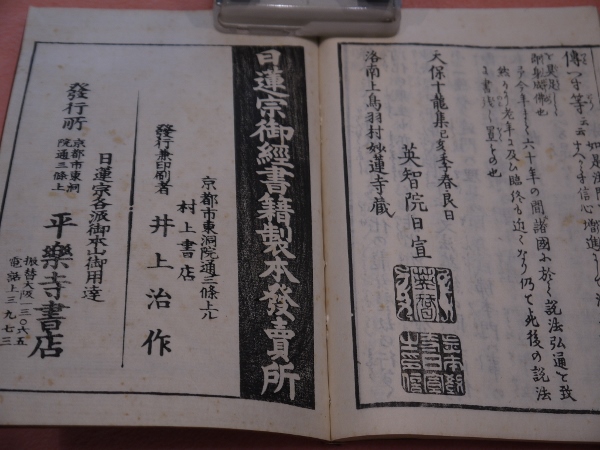 傳つ寸等云云
即身成佛也
今年まで六十年の間諸國に於て説法弘通を致
老年に及ひ臨終も近くなり仍て死後の説法
に書残し置もの也
天保十龍集己亥季春良日
英智院日宣
洛南上鳥羽村妙蓮寺蔵
日蓮宗御經書籍製本發賣所
京都市東洞院通三條上ル
村上書店
發行兼印刷者
井上治作
日蓮宗各派御本山御用達
發行所
京都市東洞
院通三條上
平樂寺書店
振替大阪一三〇六五
電話上三九七三